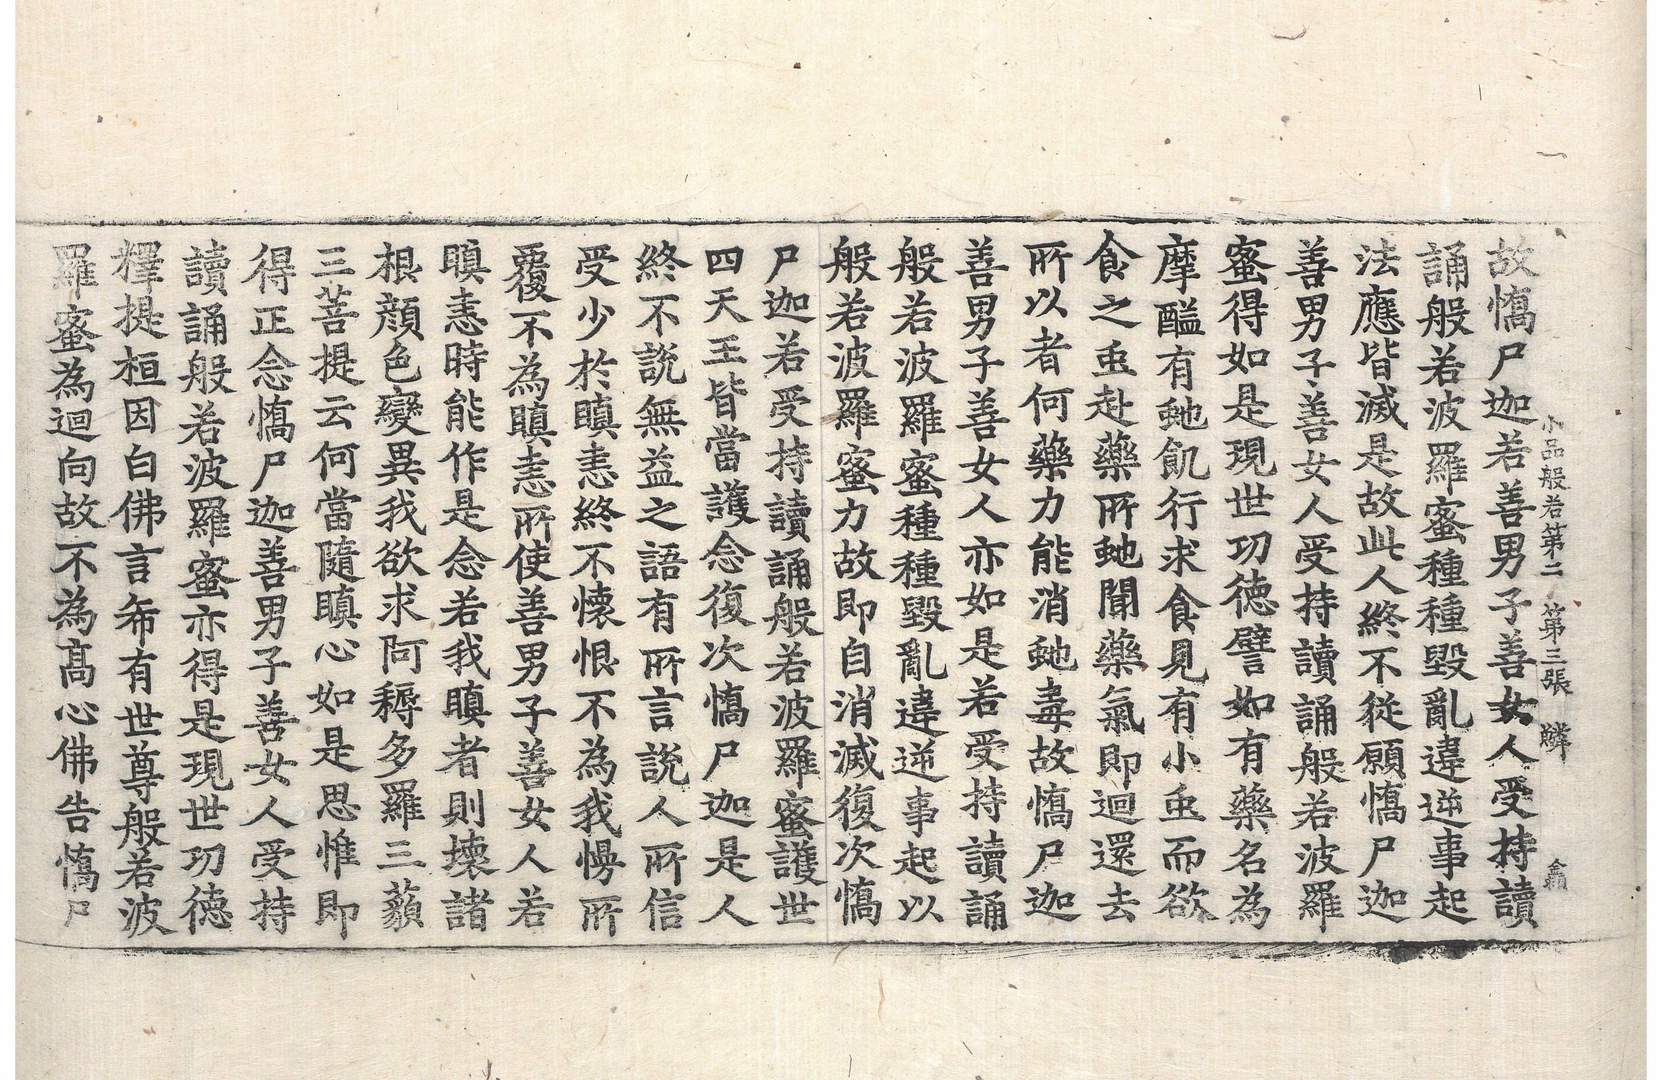 小品般若第二 第三張 鱗
故憍尸迦若善男子善女人受持讀
誦般若波羅蜜種種毀亂違逆事起
法應皆滅是故此人終不從願憍尸迦
善男子善女人受持讀誦般若波羅
蜜得如是現世功德譬如有藥名為
摩醯有虵飢行求食見有小虫而欲
食之虫赴藥所虵聞藥氣即迴還去
所以者何藥力能消虵毒故憍尸迦
善男子善女人亦如是若受持讀誦
般若波羅蜜種種毀亂違逆事起以
般若波羅蜜力故即自消滅復次憍
尸迦若受持讀誦般若波羅蜜護世
四天王皆當護念復次憍尸迦是人
終不說無益之語有所言說人所信
受少於瞋恚終不懷恨不為我慢所
覆不為瞋恚所使善男子善女人若
瞋恚時能作是念若我瞋者則壞諸
根顏色變異我欲求阿耨多羅三藐
三菩提云何當隨瞋心如是思惟即
得正念憍尸迦善男子善女人受持
讀誦般若波羅蜜亦得是現世功德
釋提桓因白佛言希有世尊般若波
羅蜜為迴向故不為高心佛告憍尸